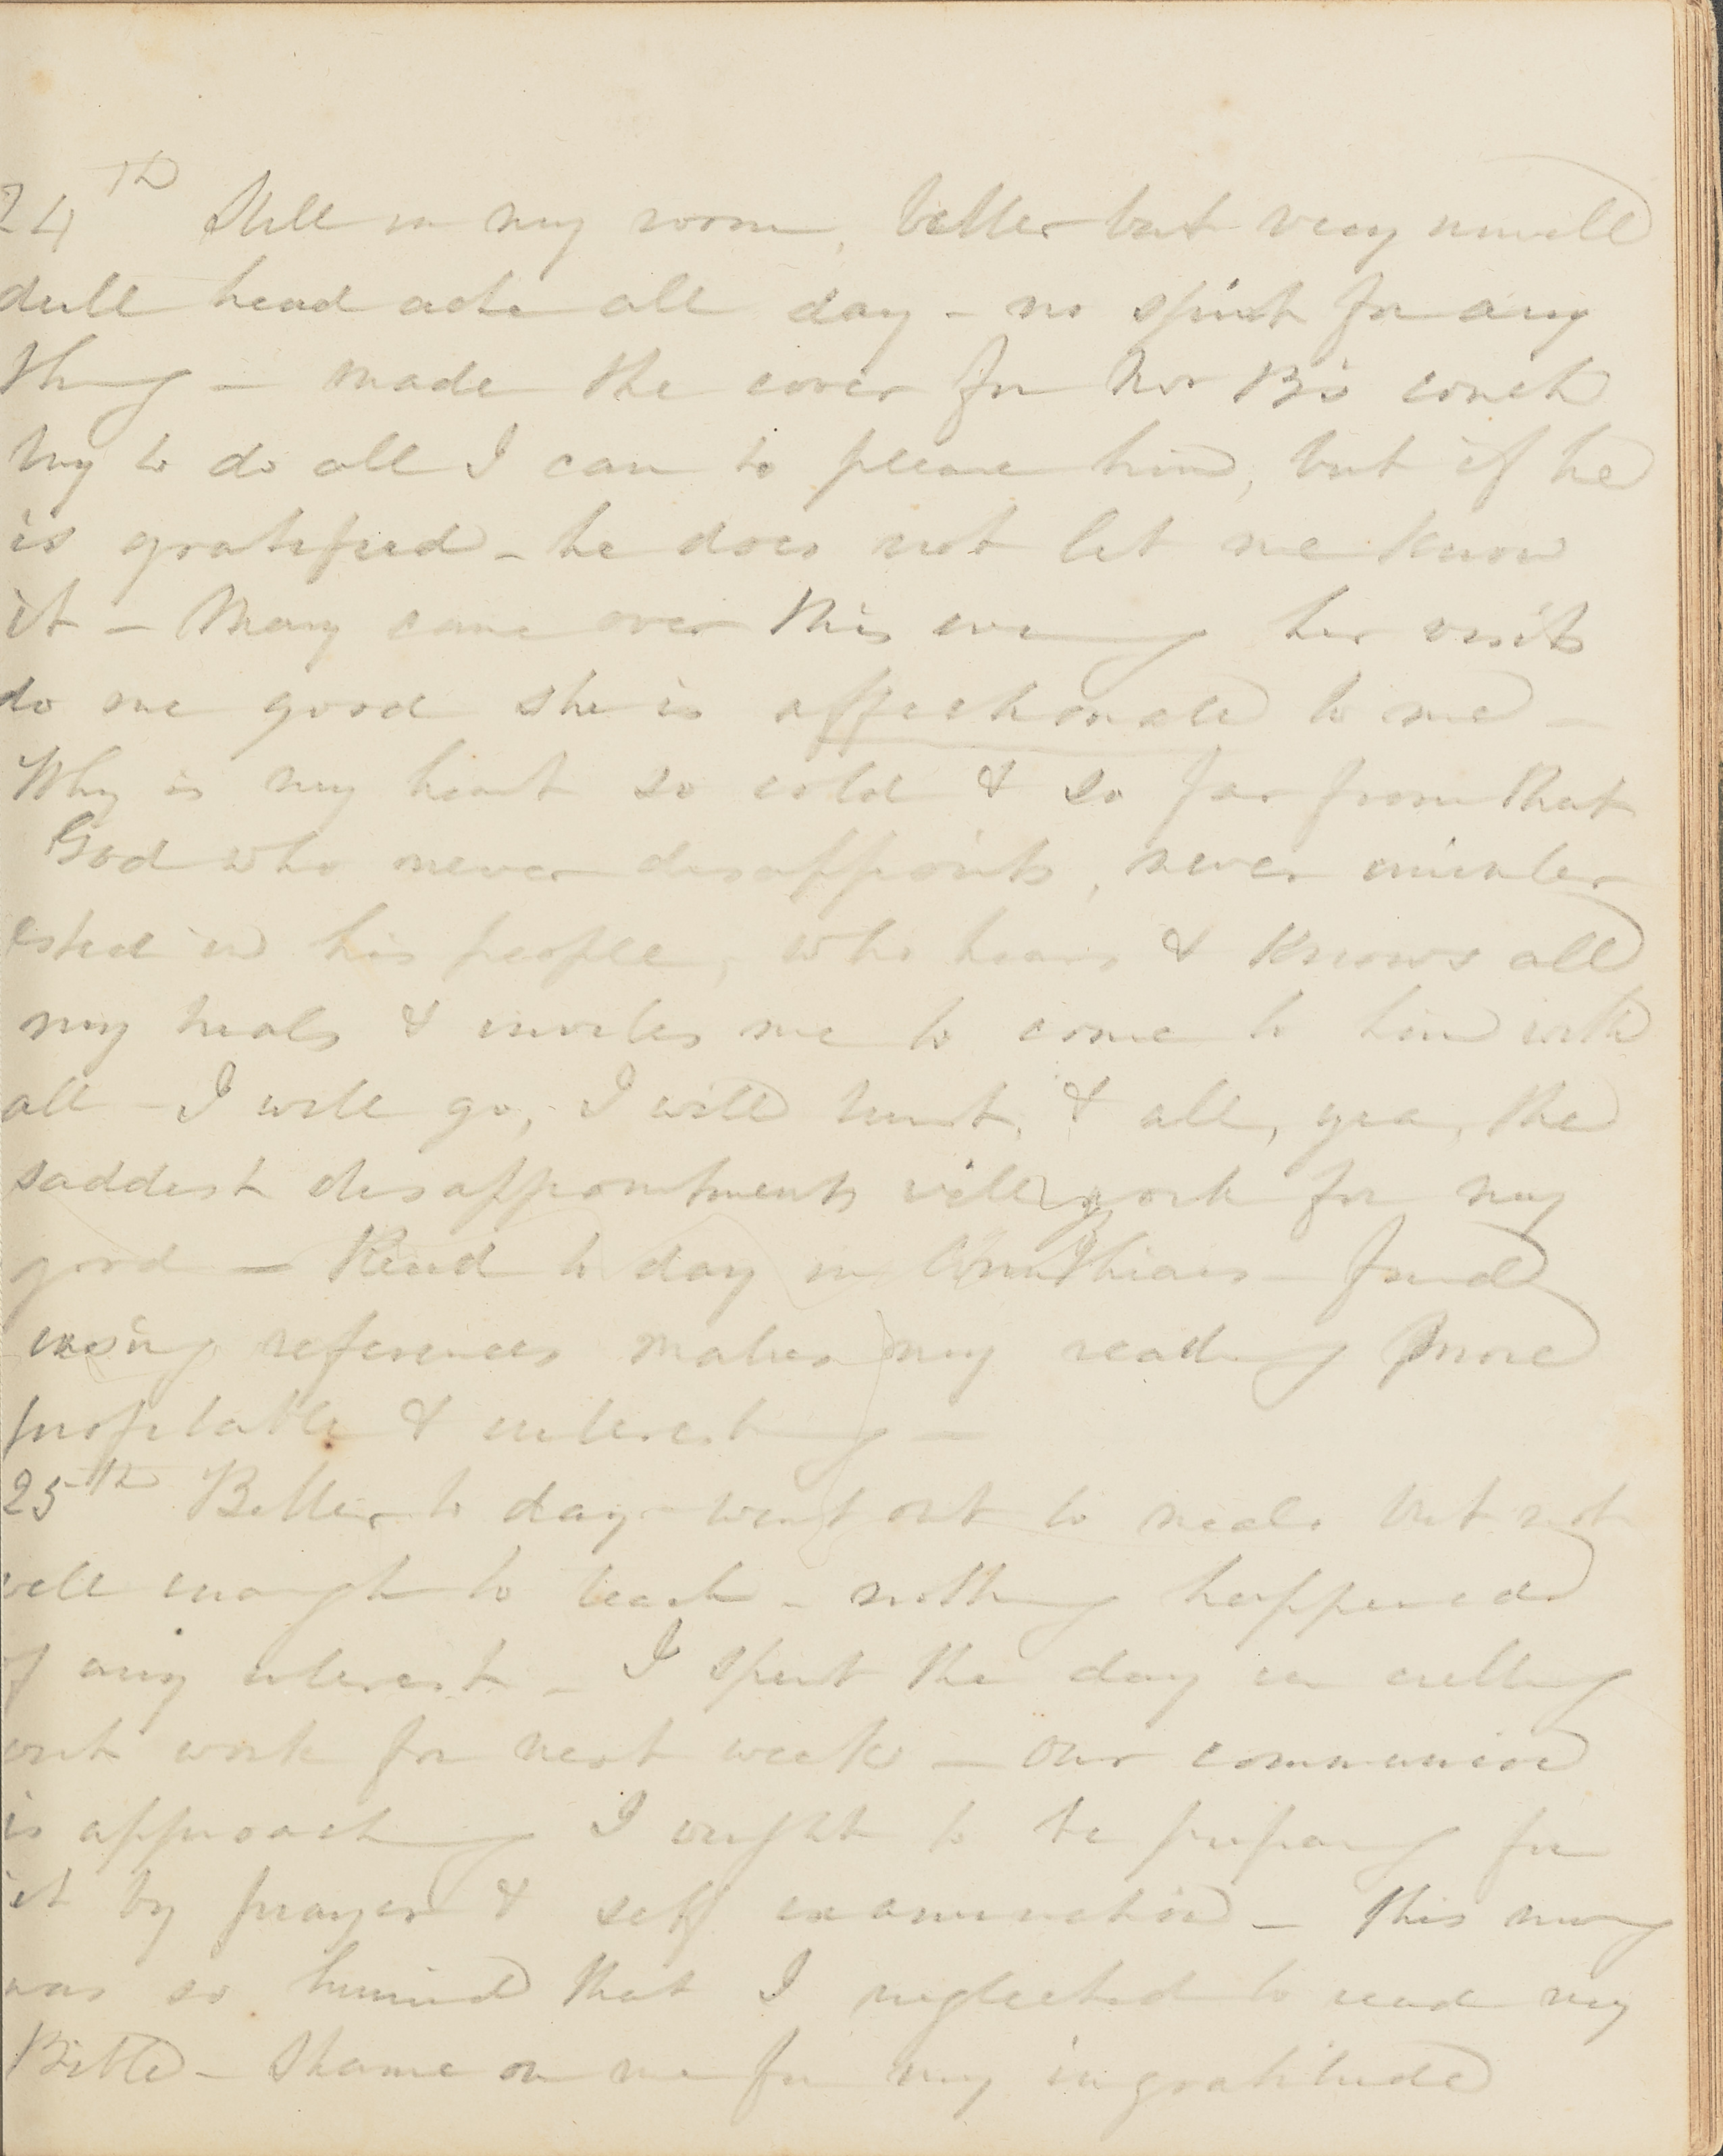 24th Still in my room, better but very unwell
dull head ache all day - no spirit for any
thing - made the cover for Mr B's couch
try to do all I can to please him, but if he
is gratified - he does not let me know
it - Mary came over this evening her visits
do me good she is affectionate to me -
Why is my heart so cold & so far from that
God who never disappoints, never uninter
ested in his people, who hears & knows all
my trials & invites me to come to him with
all - I will go, I will trust, & all, yea, the
saddest disappointments will work for my
good - Read to day in Corinthians - find
using references makes my reading more
profitable & interesting -
25th Better to day - went out to meals but not
well enough to teach - nothing happened
of any interest - I spent the day in cutting
out work for next week - our communion
is approaching I ought to be preparing for
it by prayer & self examination - this morng
was so hurried that I neglected to read my
Bible - Shame on me for my ingratitude